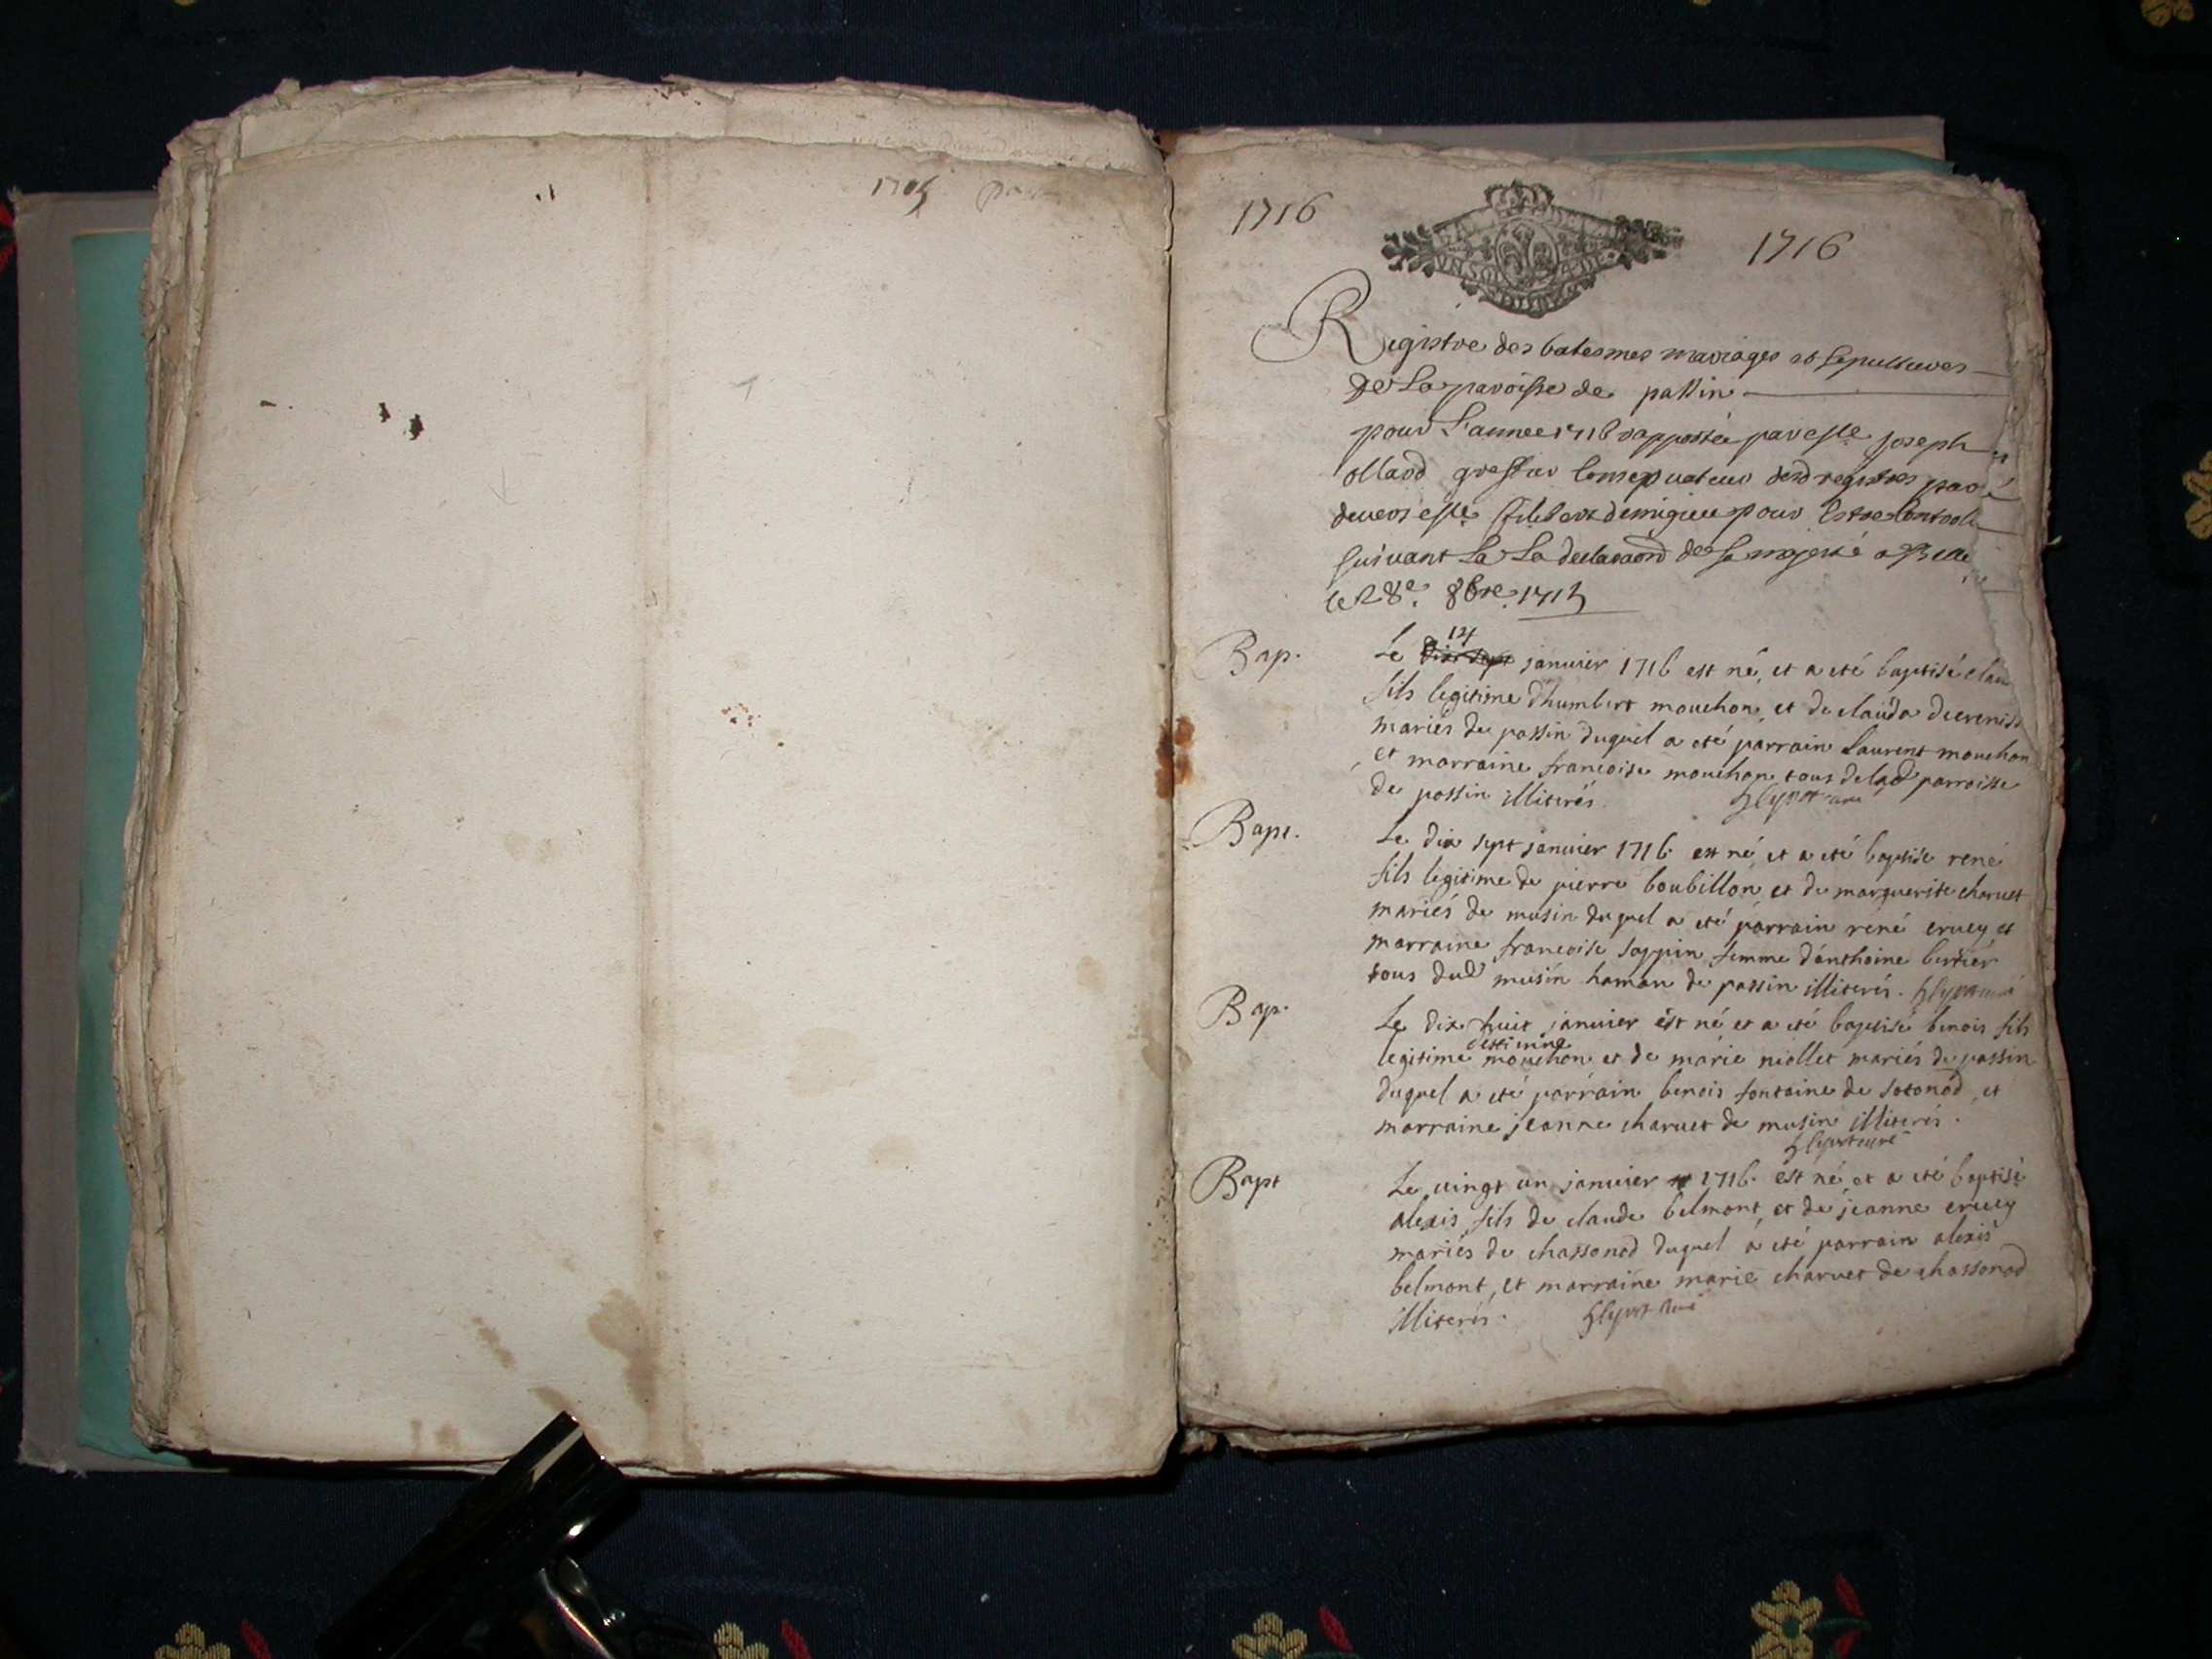 1705
1716
1716
Registre des batesmes mariages et sepultures
de La paroisse de passin
pour L'annee 1716 rapportée par esse Joseph
ollard greffier Conservateur desd registres
suivant La La declaraōn de sa majesté a Belle
le 28e 8bre 1715
Bap.
14
Le dix sept janvier 1716 est né, et a eté baptisé clau
fils legitime d'humbert mouchon, et de clauda
mariés de passin duquel a eté parrain Laurent mouchon
et marraine francoise mouchon tous de lad parroisse
de passin illiterés.
Bapt.
Le dix sept janvier 1716 est né, et a eté baptisé rené
fils legitime de pierre boubillon, et de marguerite charvet
mariés de musin duquel a eté parrain rené crucy et
marraine francoise sappin femme d'anthoine bertier
tous dud musin hamau de passin illiterés.
Bap.
Le dix huit janvier est né et a eté baptisé benois fils
d'estienne
legitime mouchon et de marie niollet mariés de passin
duquel a eté parrain benois fontaine de sotonod, et
marraine jeanne charvet de musin illiterés.
Bapt
Le vingt un janvier 1716 est né, et a eté baptisé
alexis fils de claude belmont, et de jeanne crucy
mariés de chassonod duquel a eté parrain alexis
belmont, et marraine marie charvet de chassonod
illiterés.